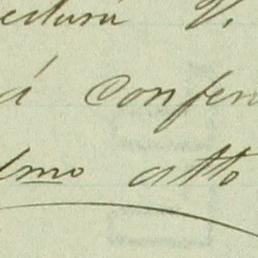 ectura V.
á confer
Ilmo atto